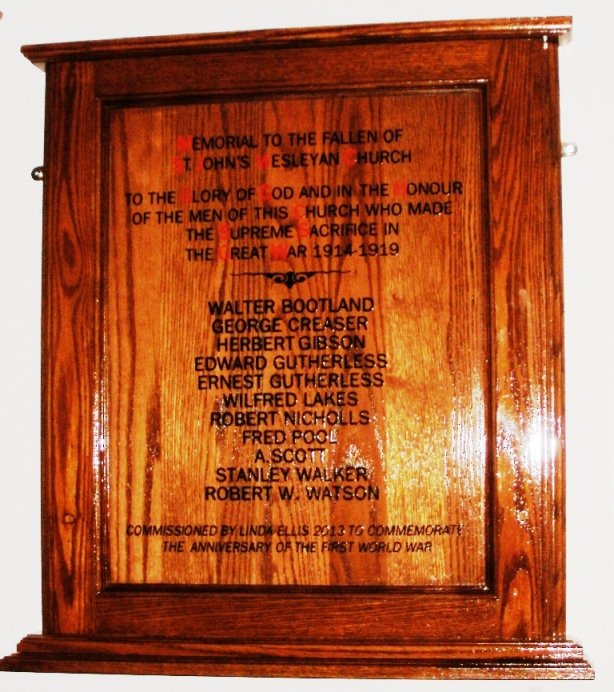 MEMORIAL TO THE FALLEN OF
ST. JOHN'S WESLEYAN CHURCH
TO THE GLORY OF GOD AND IN THE HONOUR
OF THE MEN OF THIS CHURCH WHO MADE
THE SUPREME SACRIFICE IN
THE GREAT WAR 1914-1919
WALTER BOOTLAND
GEORGE CREASER
HERBERT GIBSON
EDWARD GUTHERLESS
ERNEST GUTHERLESS
WILFRED LAKES
ROBERT NICHOLLS
FRED POOL
A.SCOTT
STANLEY WALKER
ROBERT W. WATSON
COMMISSIONED BY LINDA ELLIS 2013 TO COMMEMORATE
THE ANNIVERSARY OF THE FIRST WORLD WAR